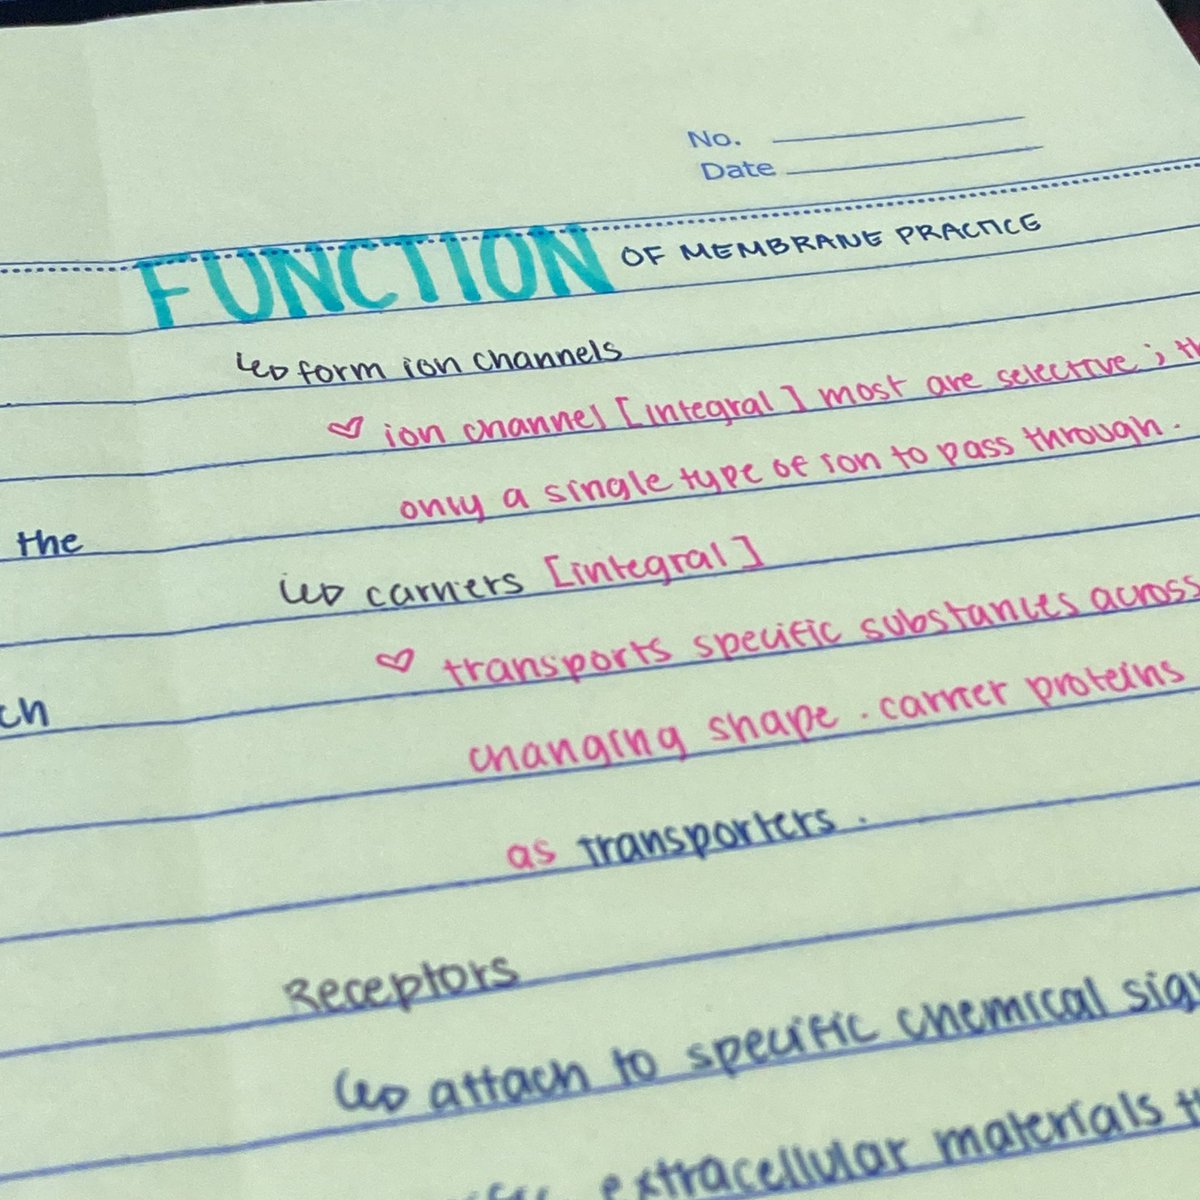 No.
Date
FUNCTION OF MEMBRANE PRACTICE
form ion channels
ion channel [integral] most are selective ; th
only a single type of ion to pass through.
the
carriers [integral]
transports specific substances across
ch
changing shape . carrier proteins
as transporters .
Receptors
attach to specific chemical sig
extracellular materials th